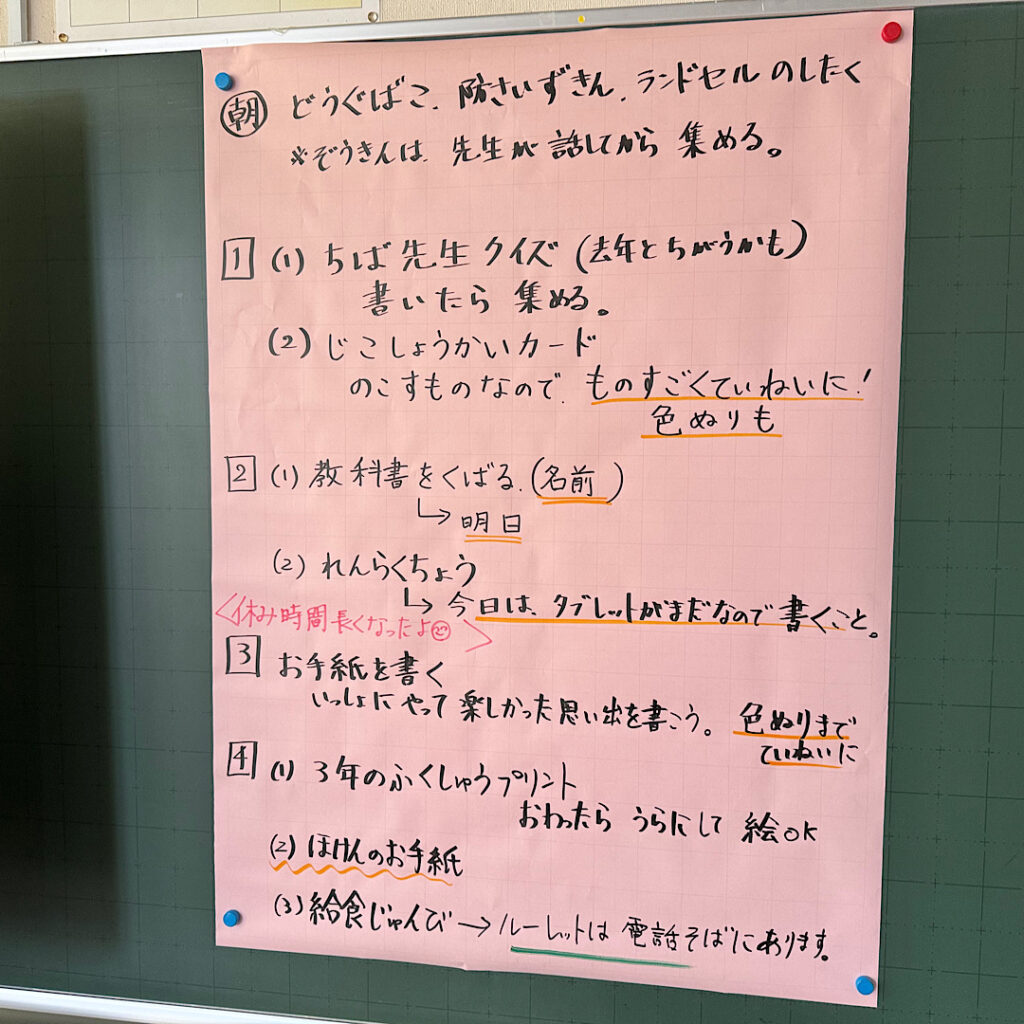 朝 どうぐばこ、防さいずきん、ランドセルのしたく
※ぞうきんは、先生が話してから集める。
1 (1) ちば先生クイズ(去年とちがうかも)
書いたら集める。
(2) じこしょうかいカード
のこすものなので、ものすごくていねいに!
色ぬりも
2 (1) 教科書をくばる、(名前)
↳ 明日
(2) れんらくちょう
↳ 今日は、タブレットがまだなので書くこと。
<休み時間長くなったよ☺>
3 お手紙を書く
いっしょにやって楽しかった思い出を書こう。 色ぬりまで
ていねいに
4 (1) 3年のふくしゅうプリント
おわったら うらにして 絵OK
(2) ほけんのお手紙
(3) 給食じゅんび → ルーレットは 電話そばにあります。